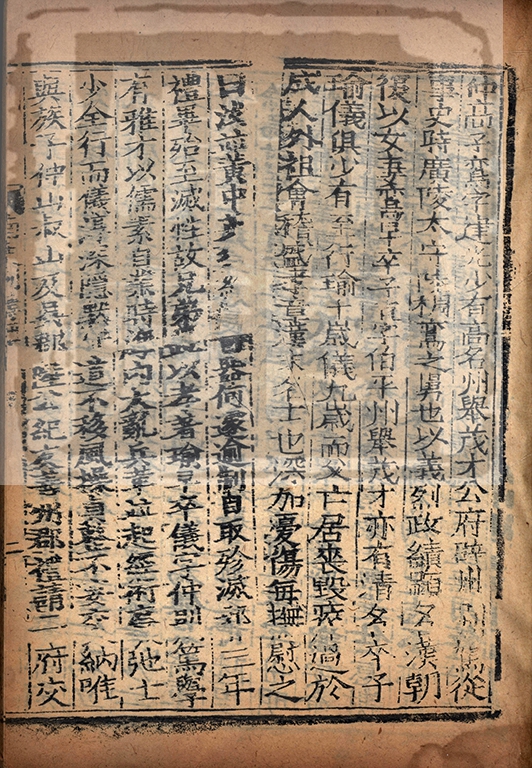 仲高子鸞字建光少有高名州舉茂才公府辟州別駕從
事史時廣陵太守陳稠鸞之舅也以義烈政績顯名漢朝
復以女妻鸞早卒子真字伯平州舉茂才亦有清名卒子
瑜儀俱少有至行瑜十歲儀九歲而父亡居喪毀瘁過於
成人外祖會稽盛孝章漢末名士也深加憂傷每撫慰之
曰汝並黃中 器何遂逾制自取殄滅邪三年
禮畢殆至滅性故兄弟以孝著瑜早卒儀字仲則篤學
有雅才以儒素自業時海內大亂兵革並起經術廢弛士
少全行而儀淳深隱默守道不移風操自整不妄交納唯
與族子仲山叔山及吳郡陸公紀友善州郡禮請二府交